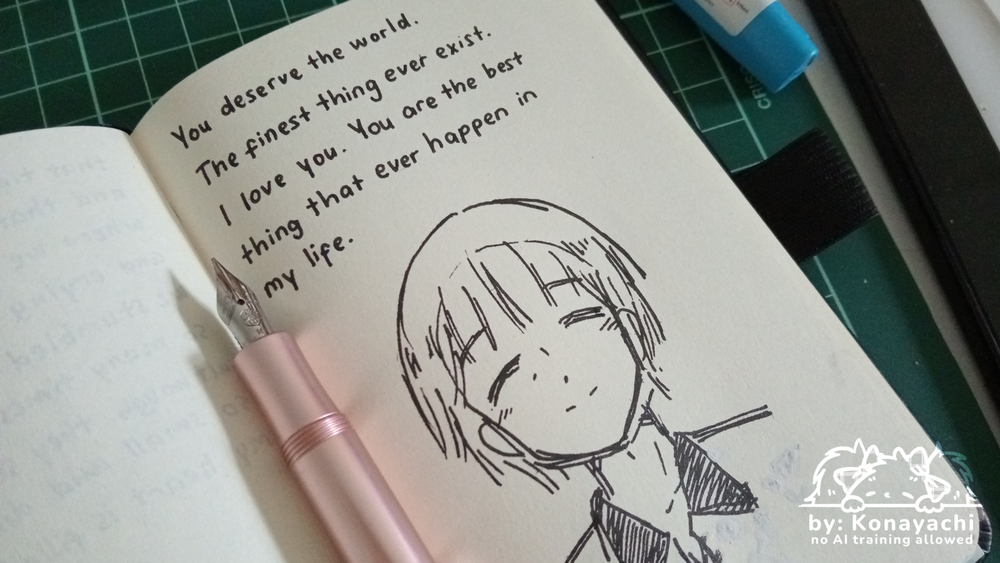 You deserve the world.
The finest thing ever exist.
I love you. You are the best
thing that ever happen in
my life.
by: Konayachi
no AI training allowed